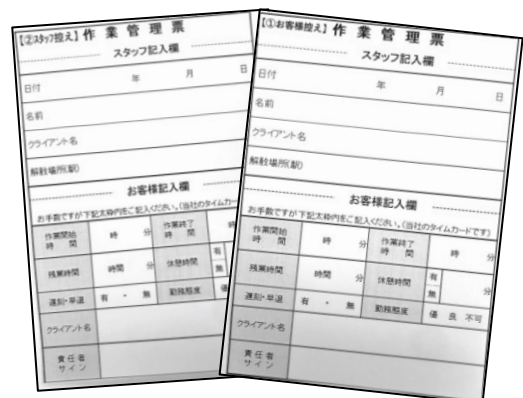 【②スタッフ控え】作 業 管 理 票
スタッフ記入欄
日付 年 月 日
名前
クライアント名
解散場所(駅)
お客様記入欄
お手数ですが下記太枠内をご記入ください。(当社のタイムカード
作業開始時間 時 分 作業終了時間 時
残業時間 時間 分 休憩時間 有 無
遅刻・早退 有 ・ 無 勤務態度 優
クライアント名
責任者サイン
【①お客様控え】作 業 管 理 票
スタッフ記入欄
日付 年 月 日
名前
クライアント名
解散場所(駅)
お客様記入欄
お手数ですが下記太枠内をご記入ください。(当社のタイムカードです)
作業開始時間 時 分 作業終了時間 時 分
残業時間 時間 分 休憩時間 有 無 分
遅刻・早退 有 ・ 無 勤務態度 優 良 不可
クライアント名
責任者サイン